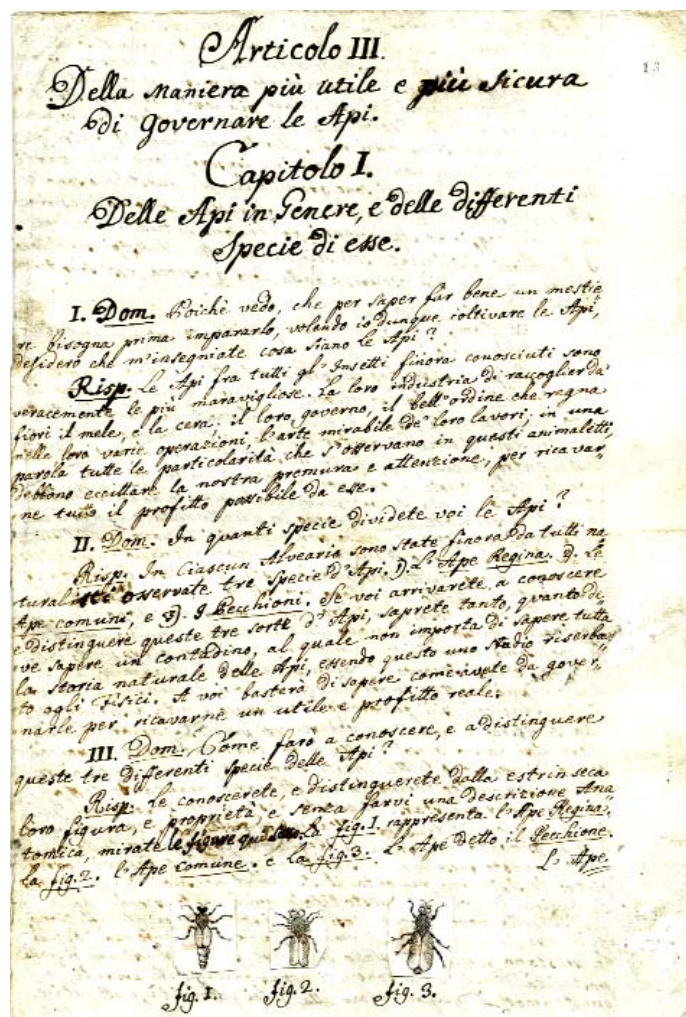 13
Articolo III.
Della Maniera più utile e più sicura
di governare le Api.
Capitolo I.
Delle Api in Genere, e delle differenti
Specie di esse.
I. Dom. Poichè vedo, che per saper far bene un mestie¸
re bisogna prima impararlo, volendo io dunque coltivare le Api,
desidero che m'insegniate cosa siano le Api?
Risp. Le Api fra tutti gl'Insetti finora conosciuti sono
veracemente le più maravigliose. La loro industria di raccoglier da'
fiori il mele, e la cera: il loro governo, il bell'ordine che regna
nelle loro varie operazioni, l'arte mirabile de' loro lavori, in una
parola tutte le particolarità che s'osservano in questi animaletti,
debbono eccittare la nostra premura e attenzione, per ricavar¸
ne tutto il profitto possibile da esse.
II. Dom. In quanti specie dividete voi le Api?
Risp. In Ciascun Alveario sono state finora da tutti na¸
turalisti osservate tre specie d'Api. 1). L'Ape Regina. 2). Le
Ape comuni, e 3). I Pecchioni. Se voi arrivarete a conoscere
e distinguere queste tre sorte d'Api, saprete tanto, quanto de¸
ve sapere un contadino, al quale non importa di sapere tutta
la storia naturale delle Api, essendo questo uno studio riserba¸
to agli Fisici. A voi basterà di sapere come avete da gover¸
narle per ricavarne un utile e profitto reale.
III. Dom. Come farò a conoscere, e a distinguere
queste tre differenti specie delle Api?
Risp. Le conoscerete, e distinguerete dalla estrinseca
loro figura, e proprietà e senza farvi una descrizione Ana¸
tomica, mirate le figure qui La fig. 1. rappresenta l'Ape Regina,
la fig. 2. l'Ape comune. e la fig. 3. L'Ape detto il Pecchione.
L'Ape
fig. 1. fig. 2. fig. 3.